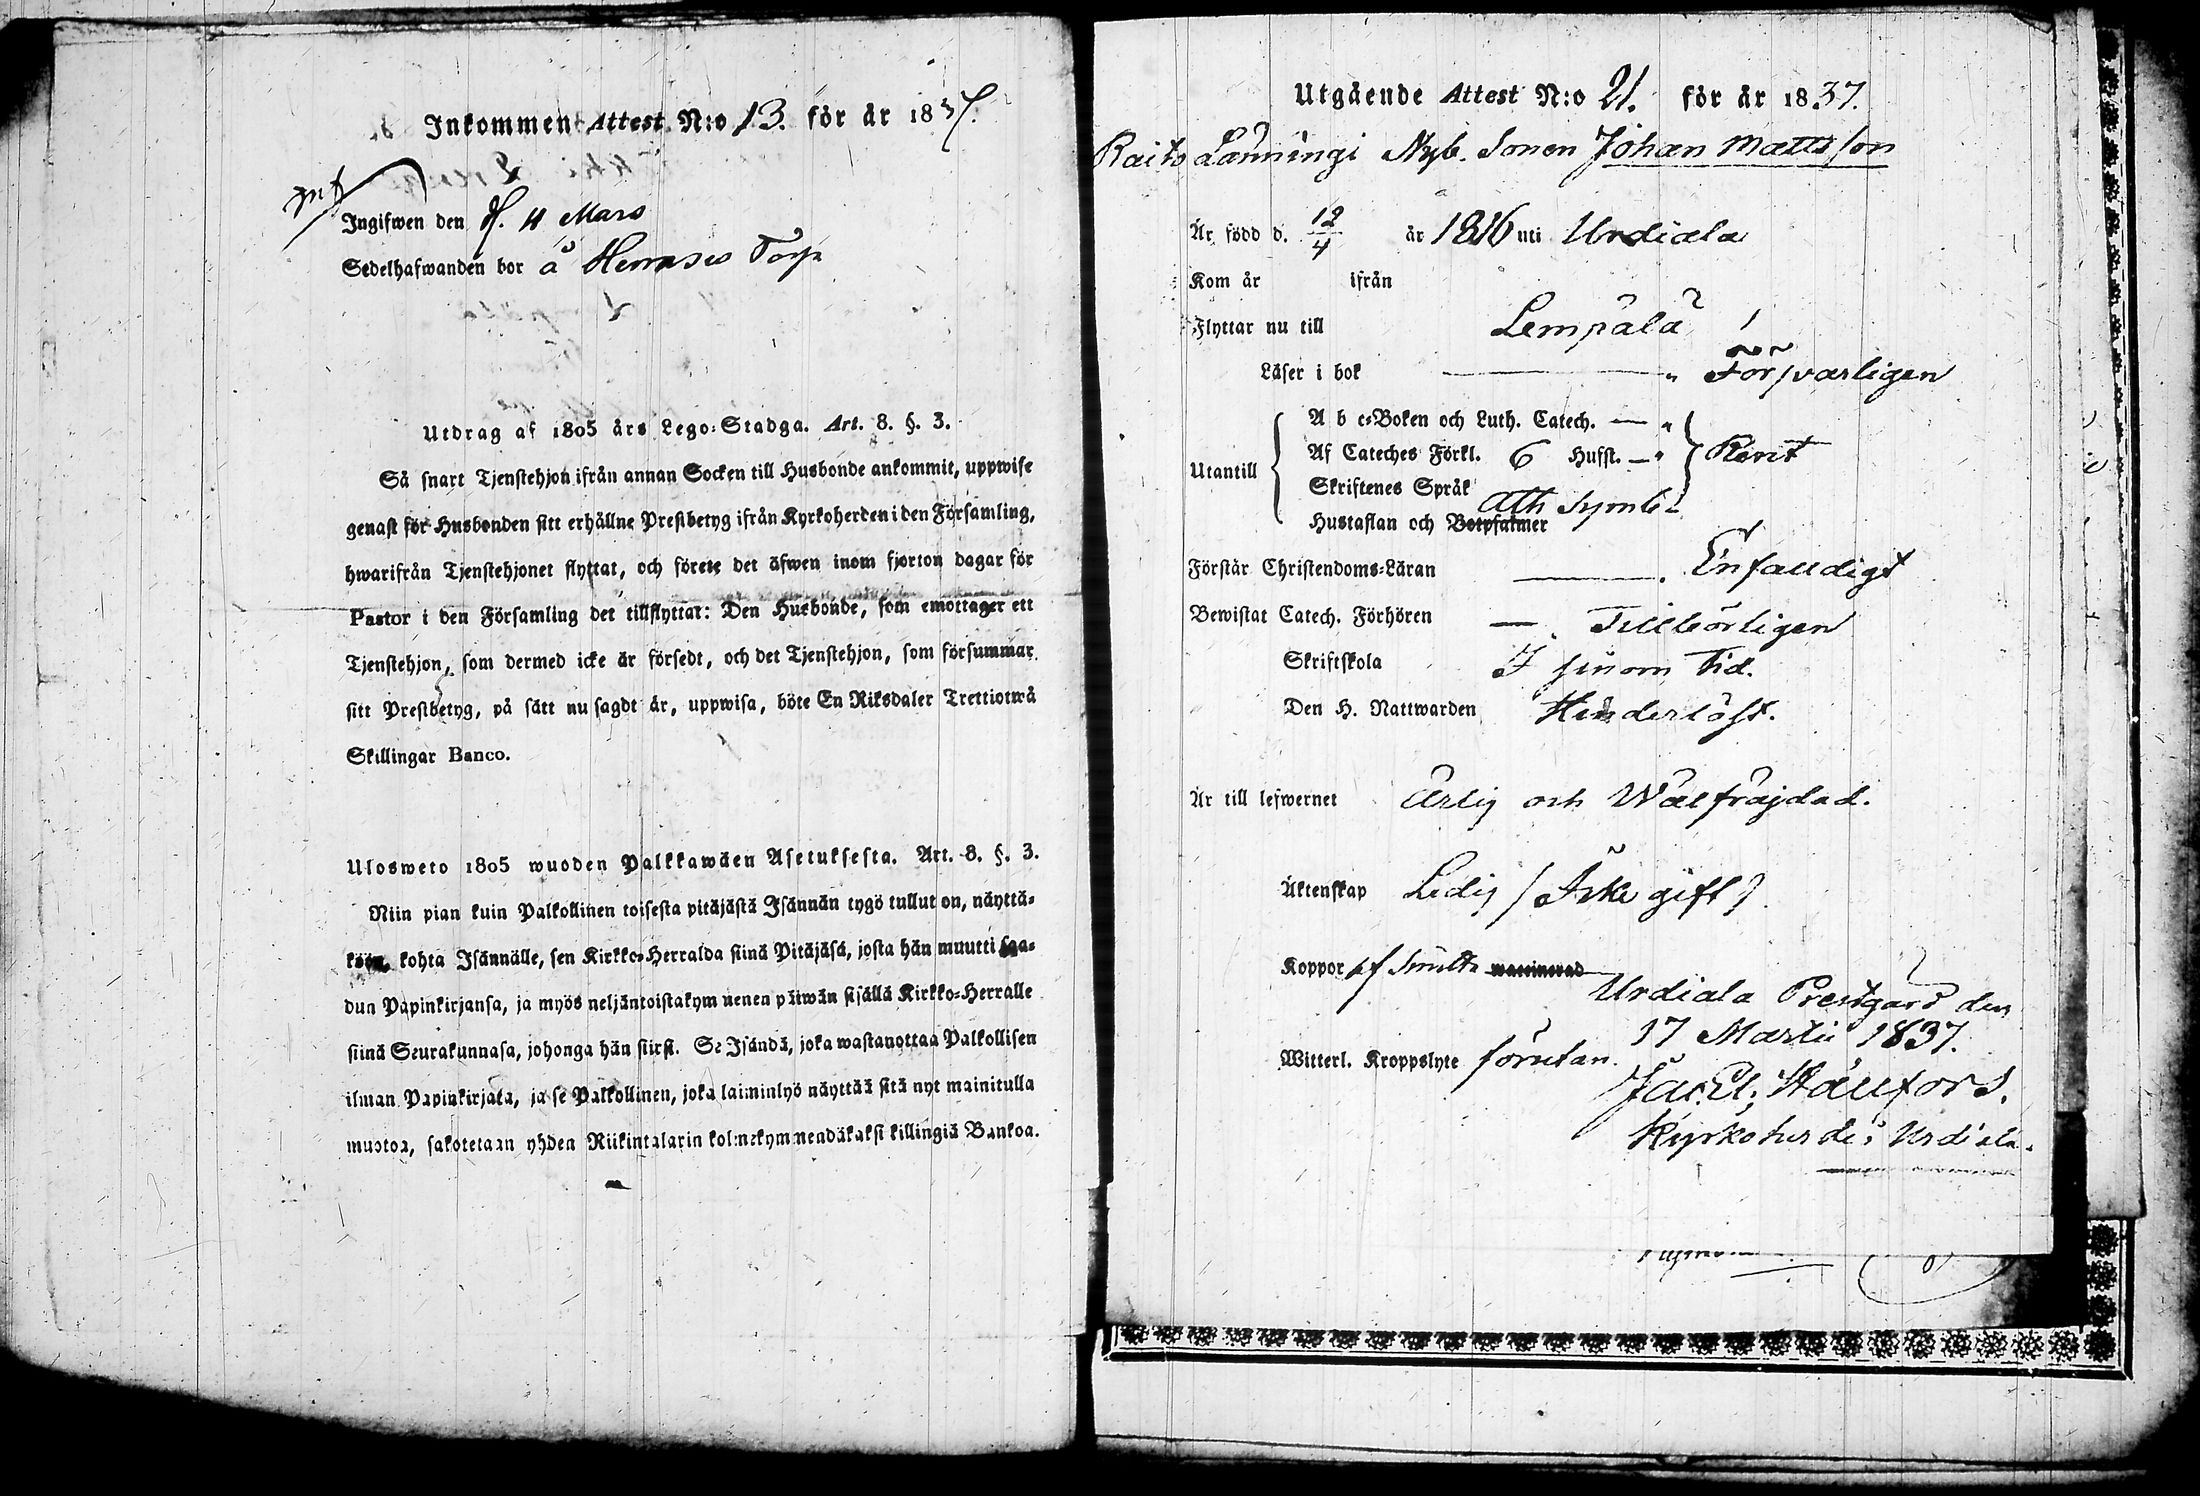 Inkommen Attest N:o 13. för år 1837.
Ingifwen den d. 4 Mars
Sedelhafwanden bor å Torp
Utdrag af 1805 års Lego-Stadga. Art. 8. §. 3.
Så snart Tjenstehjon ifrån annan Socken till Husbonde ankommit, uppwise
genast för Husbonden sitt erhållne Prestbetyg ifrån Kyrkoherden i den Församling,
hwarifrån Tjenstehjonet flyttat, och förete det äfwen inom fjorton dagar för
Pastor i den Församling det tillflyttat: Den Husbonde, som emottager ett
Tjenstehjon, som dermed icke är försedt, och det Tjenstehjon, som försummar
sitt Prestbetyg, på sätt nu sagdt är, uppwisa, böte En Riksdaler Trettiotwå
Skillingar Banco.
Ulosweto 1805 wuoden Palkkawäen Asetuksesta. Art. 8. §. 3.
Niin pian kuin Palkollinen toisesta pitäjästä Isännän tygö tullut on, näyttä-
köön kohta Isännälle, sen Kirkko-Herralda siinä Pitäjäsä, josta hän muutti saa-
dun Papinkirjansa, ja myös neljäntoistakymmenen päiwän sisällä Kirkko-Herralle
siinä Seurakunnasa, johonga hän siirsi. Se Isändä, joka wastanottaa Palkollisen
ilman Papinkirjata, ja se Palkollinen, joka laiminlyö näyttää sitä nyt mainitulla
muotoa, sakotetaan yhden Riikintalarin kolmekymmendäkaksi killingiä Bankoa.
Utgående Attest N:o 21. för år 1837.
Raito Nyb. Sonen Johan Mattsson
Är född d. 12/4 år 1816 uti Urdiala
Kom år ifrån
Flyttar nu till Lempälä
Läser i bok — " Försvarligen
A b c-Boken och Luth. Catech. — "
Af Cateches Förkl. 6 Hufst. — " Rent
Utantill
Skriftenes Språk
Ath Symb:
Hustaflan och Botpsalmer
Förstår Christendoms-Läran — . Enfaldigt
Bewistat Catech. Förhören — Tillbörligen
Skriftskola I sinom tid.
Den H. Nattwarden Hinderlöst.
Är till lefwernet Ärlig och Wälfrägdad.
Äktenskap Ledig / Icke gift /
Koppor af waccinerad
Urdiala Prestgård den
17 Martii 1837.
Witterl. Kroppslyte förutan.
Kyrkoherde i Urdiala.